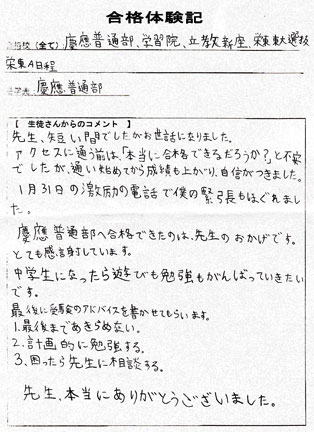 合格体験記
合格校(全て) 慶應普通部、学習院、立教新座、栄東東大選抜
栄東A日程
進学先 慶應普通部
【 生徒さんからのコメント 】
先生、短い間でしたがお世話になりました。
アクセスに通う前は、「本当に合格できるだろうか?」と不安
でしたが、通い始めてから成績も上がり、自信がつきました。
1月31日の激励の電話で僕の緊張もほぐれまし
た。
慶應普通部へ合格できたのは、先生のおかげです。
とても感謝しています。
中学生になったら遊びも勉強もがんばっていきたい
です。
最後に受験のアドバイスを書かせてもらいます。
1.最後まであきらめない。
2.計画的に勉強する。
3.困ったら先生に相談する。
先生、本当にありがとうございました。